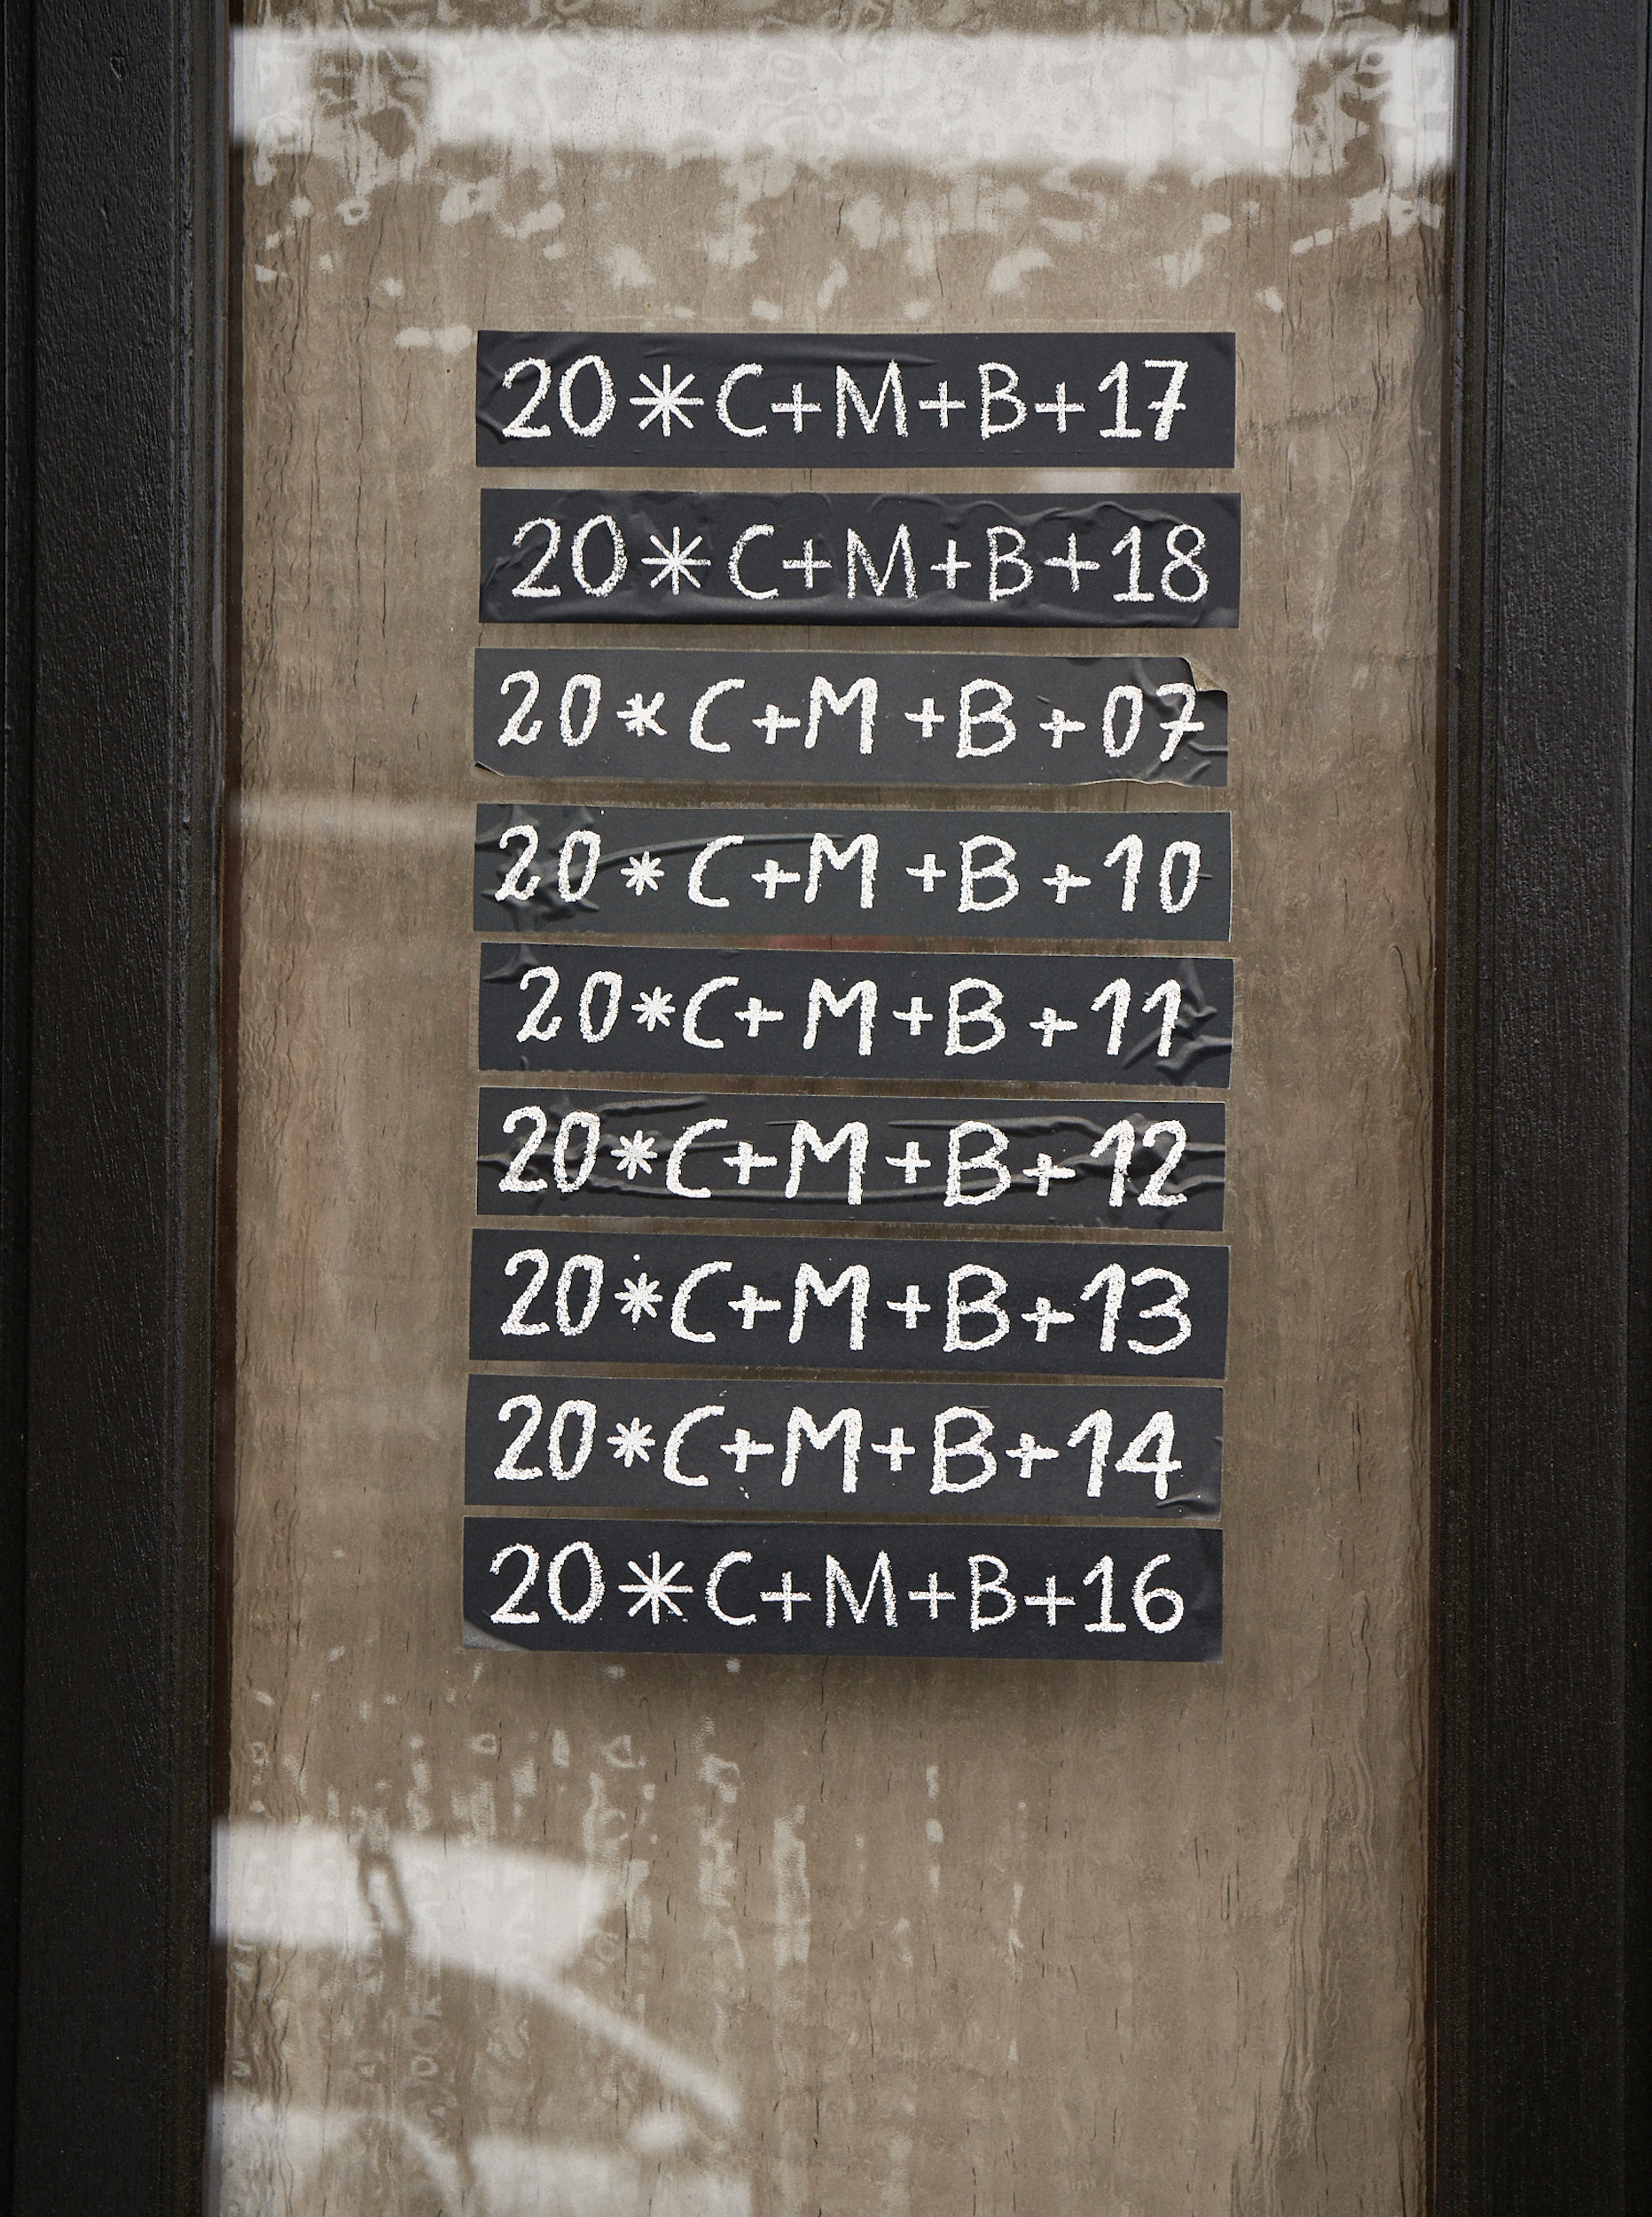 20*C+M+B+17
20*C+M+B+18
20*C+M+B+07
20*C+M+B+10
20*C+M+B+11
20*C+M+B+12
20*C+M+B+13
20*C+M+B+14
20*C+M+B+16